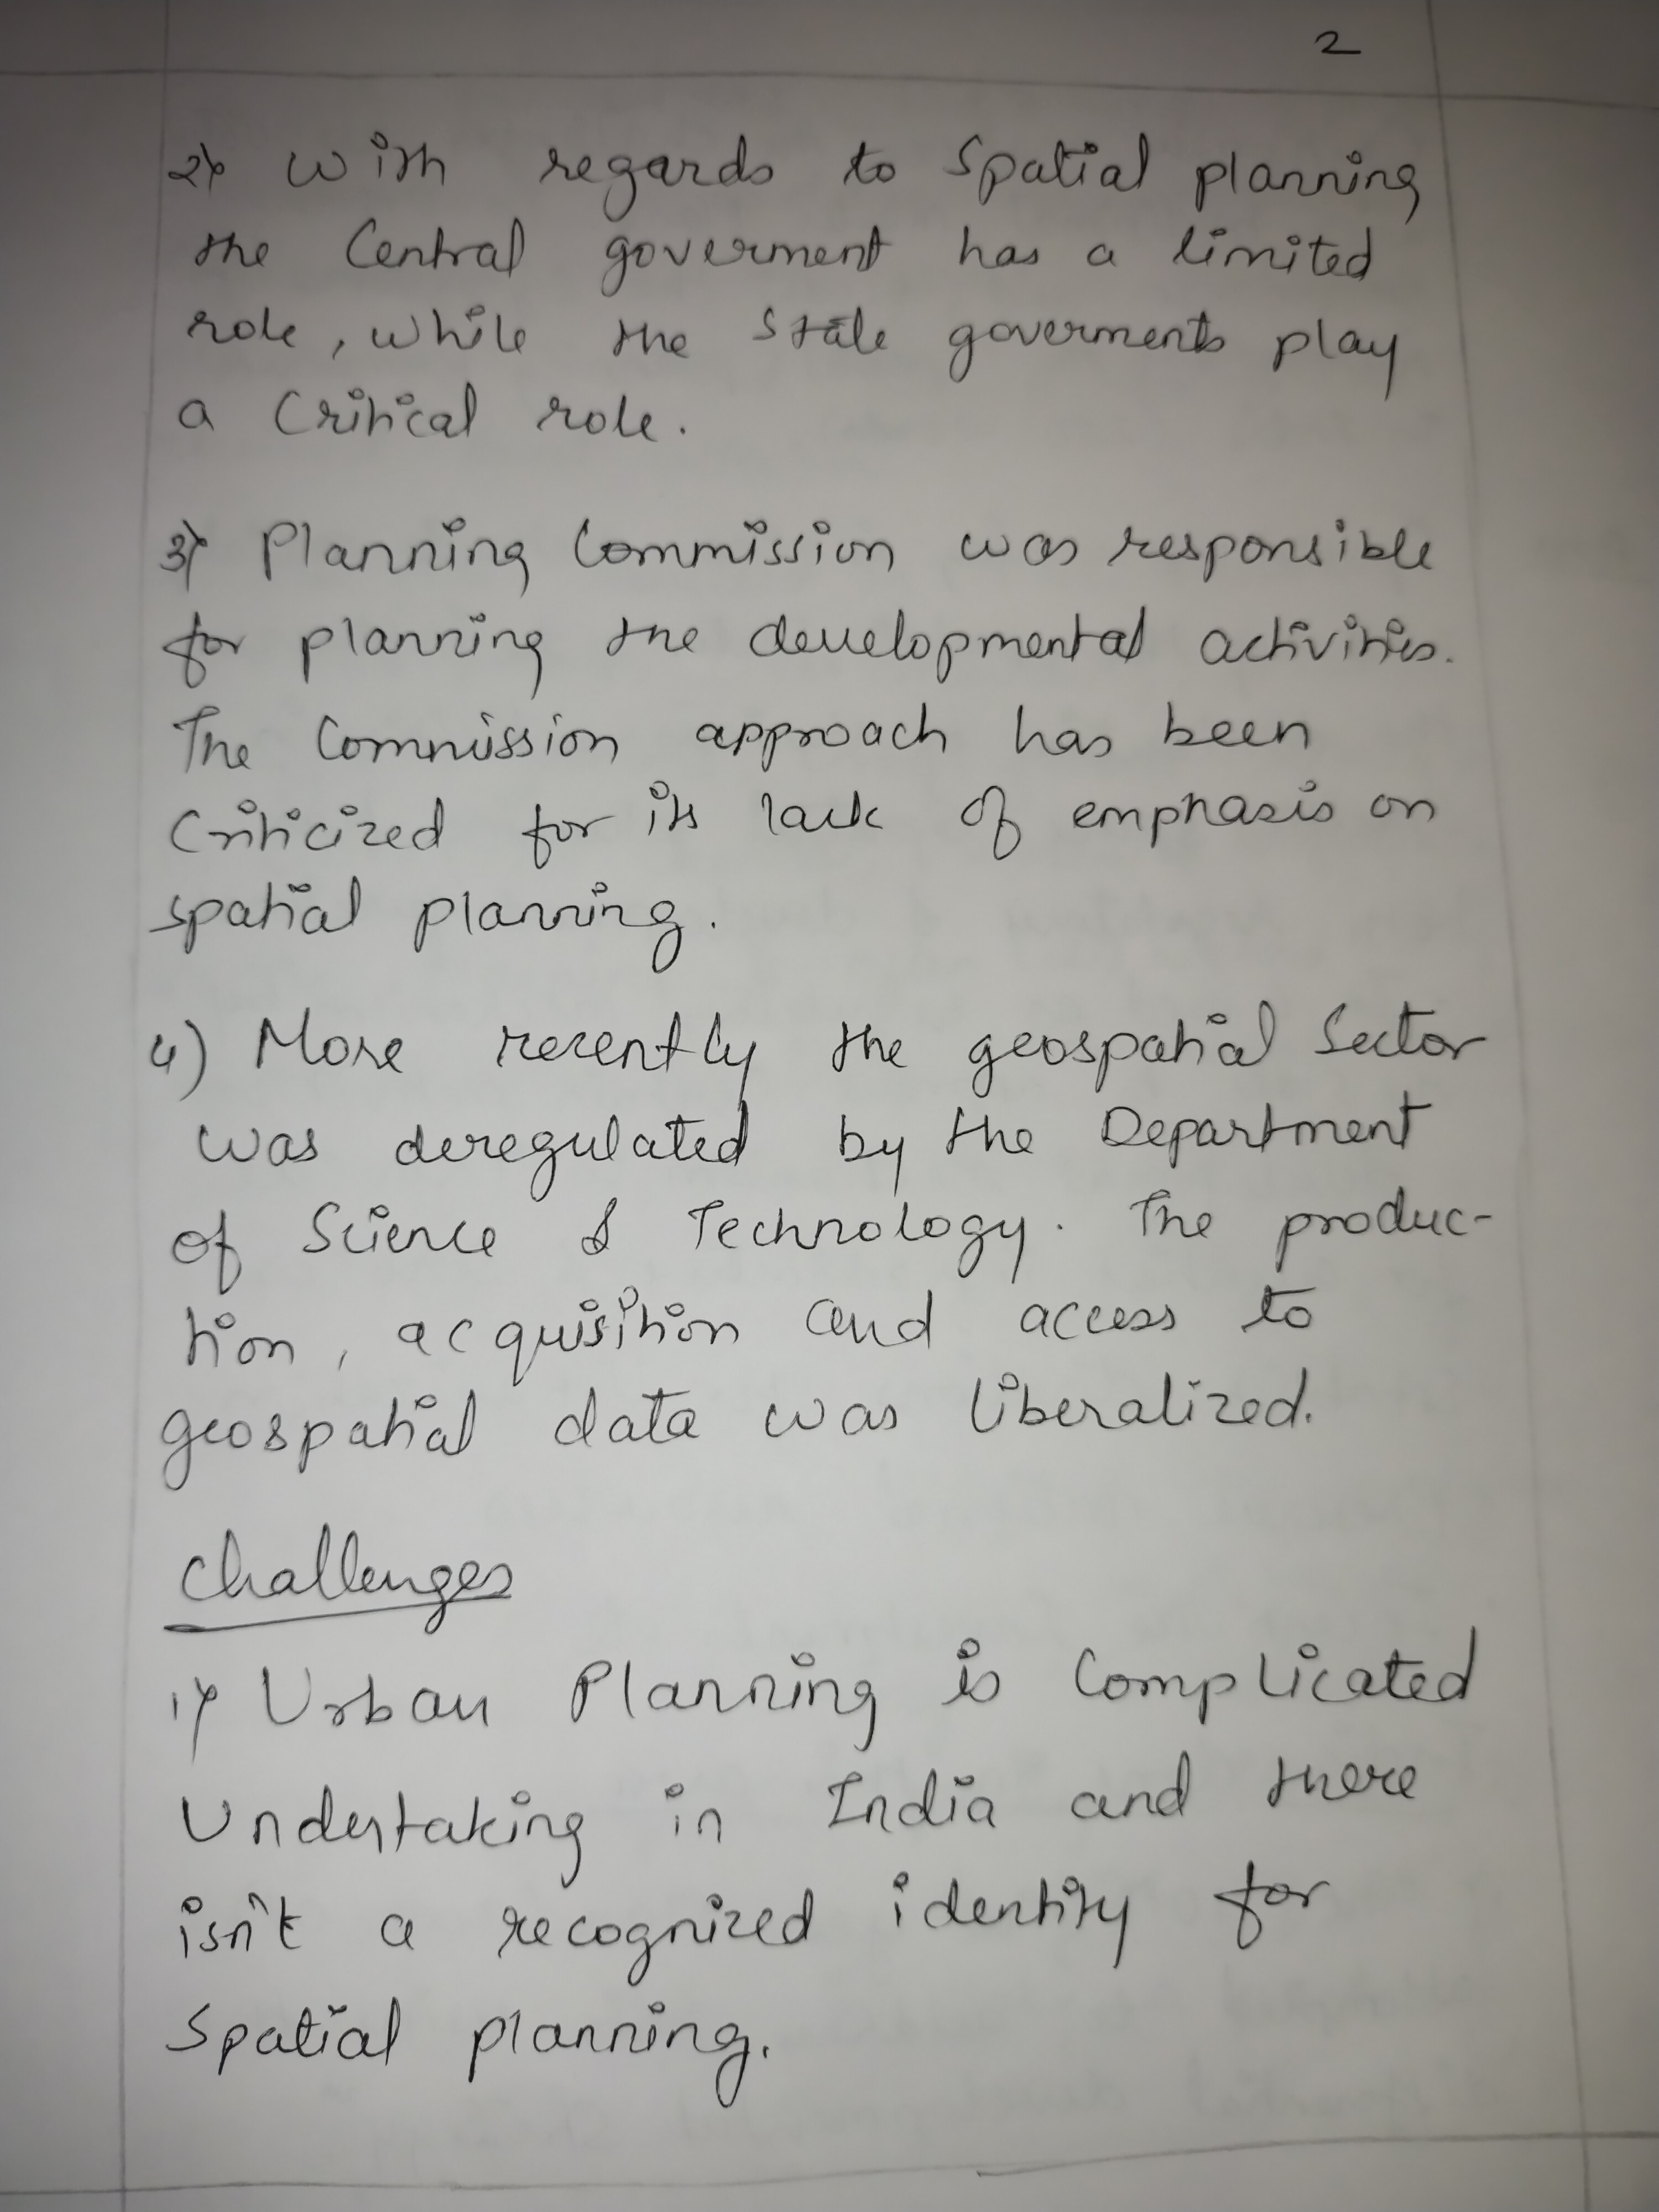 2
2) With regards to Spatial planning
the Central goverment has a limited
role, while the State goverments play
a Critical role.
3) Planning Commission was responsible
for planning the developmental activities.
The Commission approach has been
Criticized for its lack of emphasis on
spatial planning.
4) More recently the geospatial Sector
was deregulated by the Department
of Science & Technology. The produc-
tion, acquisition and access to
geospatial data was liberalized.
Challenges
1) Urban Planning is Complicated
Undertaking in India and there
isn't a recognized identity for
Spatial planning.